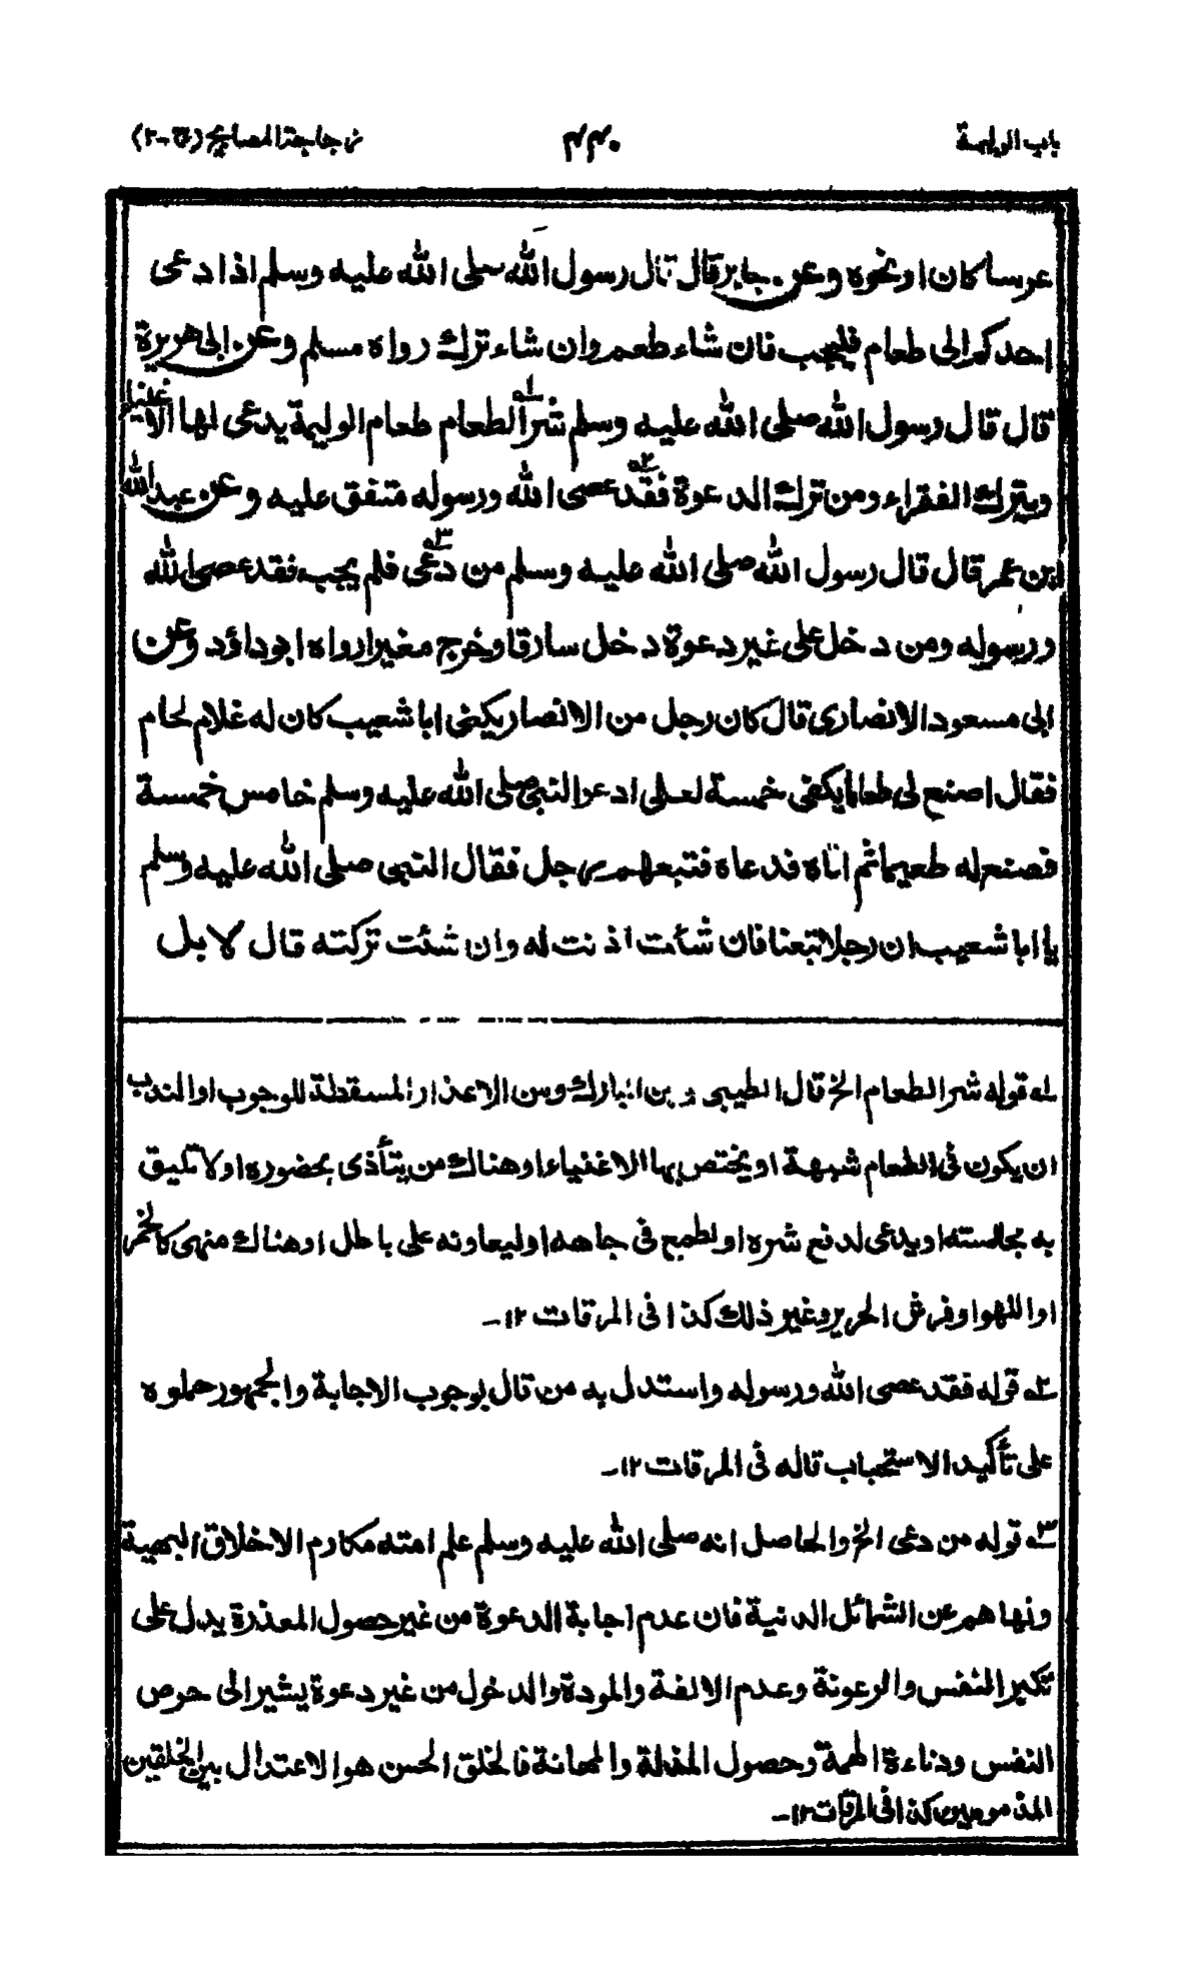 باب الوليمة
٤٤٠
زجاجة المصابيح (ج-٢)
عرسا كان او نحوه وعن جابر قال قال رسول الله صلى الله عليه وسلم اذا دعى
احدكم الى طعام فليجب فان شاء طعم وان شاء ترك رواه مسلم وعن ابى هريرة
قال قال رسول الله صلى الله عليه وسلم شر الطعام طعام الوليمة يدعى لها الاغنياء
ويترك الفقراء ومن ترك الدعوة فقد عصى الله ورسوله متفق عليه وعن عبد الله
ابن عمر قال قال رسول الله صلى الله عليه وسلم من دعى فلم يجب فقد عصى الله
ورسوله ومن دخل على غير دعوة دخل سارقا وخرج مغيرا رواه ابوداؤد وعن
ابى مسعود الانصارى قال كان رجل من الانصار يكنى ابا شعيب كان له غلام لحام
فقال اصنع لى طعاما يكفى خمسة لعلى ادعو النبى صلى الله عليه وسلم خامس خمسة
فصنع له طعيما ثم اتاه فدعاه فتبعهم رجل فقال النبى صلى الله عليه وسلم
يا ابا شعيب ان رجلا تبعنا فان شئت اذنت له وان شئت تركته قال لا بل
١ـه قوله شر الطعام الخ قال الطيبى و بن المبارك ومن الاعذار المسقطة للوجوب او الندب
ان يكون فى الطعام شبهة او يختص بها الاغنياء او هناك من يتأذى بحضوره او لا تليق
به مجالسته او يدعى لدفع شره او لطمع فى جاهه او ليعاونه على باطل او هناك منهى كالخمر
او اللهو او فرش الحرير وغير ذلك كذا فى المرقات ١٢-
٢ـه قوله فقد عصى الله ورسوله واستدل به من قال بوجوب الاجابة والجمهور حملوه
على تأكيد الاستحباب قاله فى المرقات ١٢-
٣ـه قوله من دعى الخ والحاصل انه صلى الله عليه وسلم علم امته مكارم الاخلاق البهية
ونهاهم عن الشمائل الدنية فان عدم اجابة الدعوة من غير حصول المعذرة يدل على
تكبر النفس والرعونة وعدم الالفة والمودة والدخول من غير دعوة يشير الى حرص
النفس ودناءة الهمة وحصول المذلة والمهانة فالخلق الحسن هو الاعتدال بين الخلقين
المذمومين كذا فى المرقات ١٢-